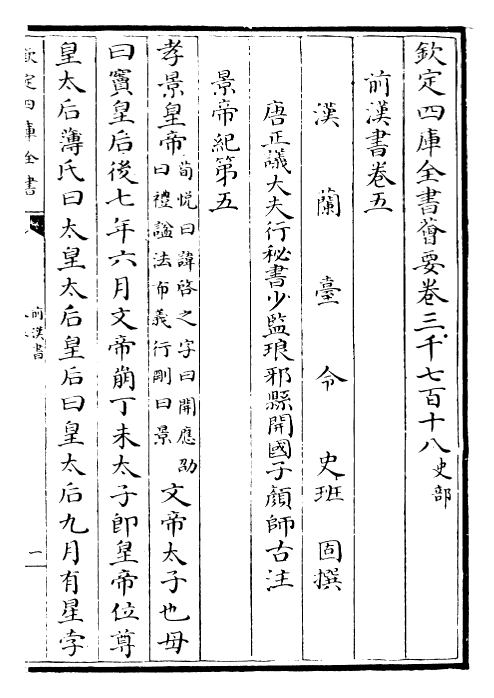 欽定四庫全書薈要卷三千七百十八史部
前漢書卷五
漢蘭臺令史班固撰
唐正議大夫行秘書少監琅邪縣開國子顏師古注
景帝紀第五
孝景皇帝荀悅曰諱啓之字曰開應劭曰禮諡法布義行剛曰景文帝太子也母
曰竇皇后後七年六月文帝崩丁未太子卽皇帝位尊
皇太后薄氏曰太皇太后皇后曰皇太后九月有星孛
欽定四庫全書
前漢書
一